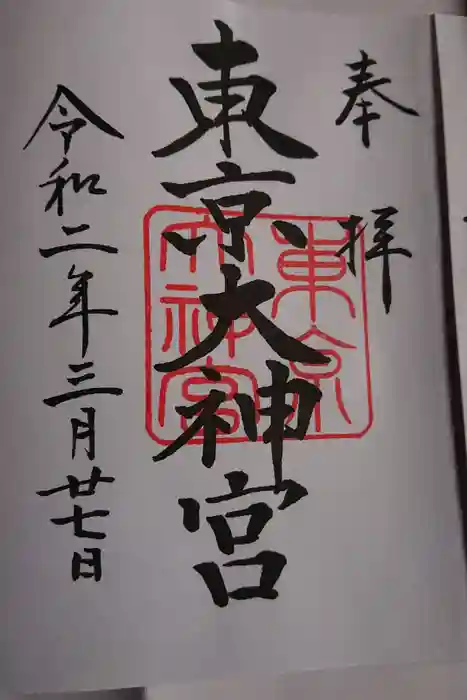 奉拝
東京大神宮
東京大神宮
令和二年三月廿七日